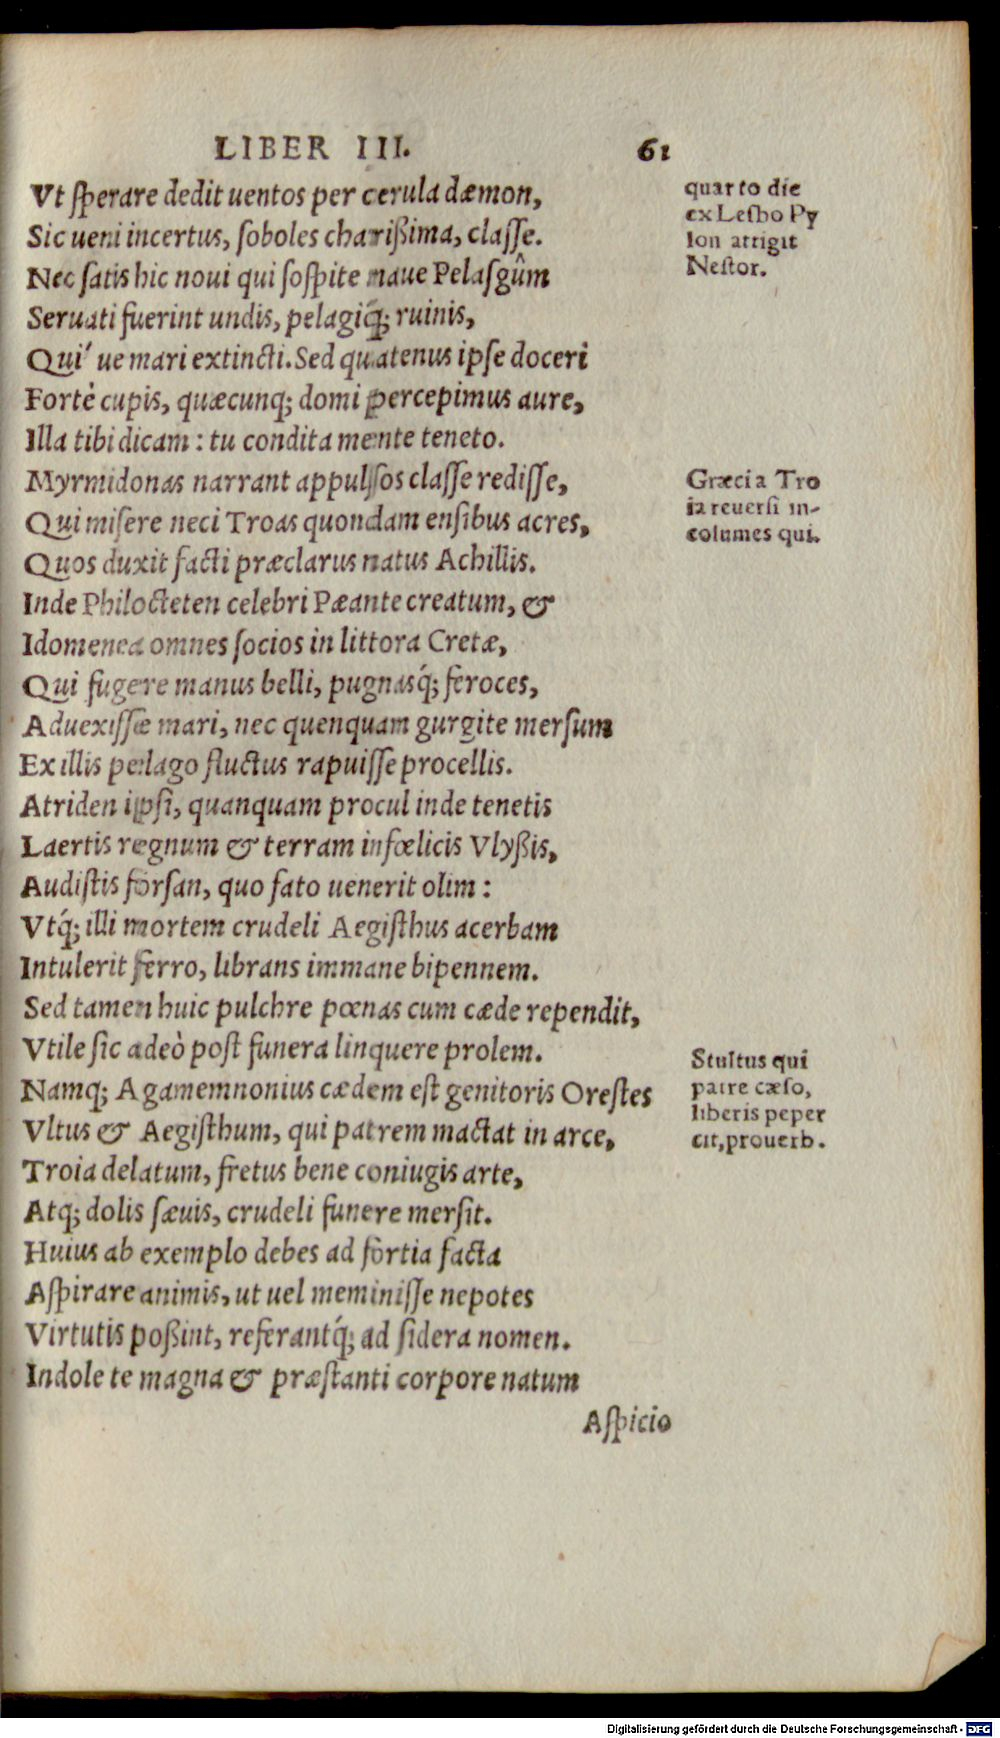 LIBER III. 61
Vt ſperare dedit uentos per cerula dæmon,
Sic ueni incertus, ſoboles charißima, claſſe.
Nec ſatis hic noui qui ſoſpite naue Pelaſgûm
Seruati fuerint undis, pelagiq́; ruinis,
Qui' ue mari extincti. Sed quatenus ipſe doceri
Fortè cupis, quæcunq; domi percepimus aure,
Illa tibi dicam: tu condita mente teneto.
Myrmidonas narrant appulſos claſſe rediſſe,
Qui miſere neci Troas quondam enſibus acres,
Quos duxit facti præclarus natus Achillis.
Inde Philocteten celebri Pæante creatum, &
Idomenea omnes ſocios in littora Cretæ,
Qui fugere manus belli, pugnasq́; feroces,
Aduexiſſe mari, nec quenquam gurgite merſum
Ex illis pelago fluctus rapuiſſe procellis.
Atriden ipſi, quanquam procul inde tenetis
Laertis regnum & terram infœlicis Vlyßis,
Audiſtis forſan, quo fato uenerit olim:
Vtq́; illi mortem crudeli Aegiſthus acerbam
Intulerit ferro, librans immane bipennem.
Sed tamen huic pulchre pœnas cum cæde rependit,
Vtile ſic adeò poſt funera linquere prolem.
Namq; Agamemnonius cædem eſt genitoris Oreſtes
Vltus & Aegiſthum, qui patrem mactat in arce,
Troia delatum, fretus bene coniugis arte,
Atq; dolis ſæuis, crudeli funere merſit.
Huius ab exemplo debes ad fortia facta
Aſpirare animis, ut uel meminiſſe nepotes
Virtutis poßint, referantq́; ad ſidera nomen.
Indole te magna & præſtanti corpore natum
Aſpicio
quarto die
ex Leſbo Py
lon attigit
Neſtor.
Græcia Tro
ia reuerſi in-
columes qui.
Stultus qui
patre cæſo,
liberis peper
cit, prouerb.
Digitalisierung gefördert durch die Deutsche Forschungsgemeinschaft - DFG